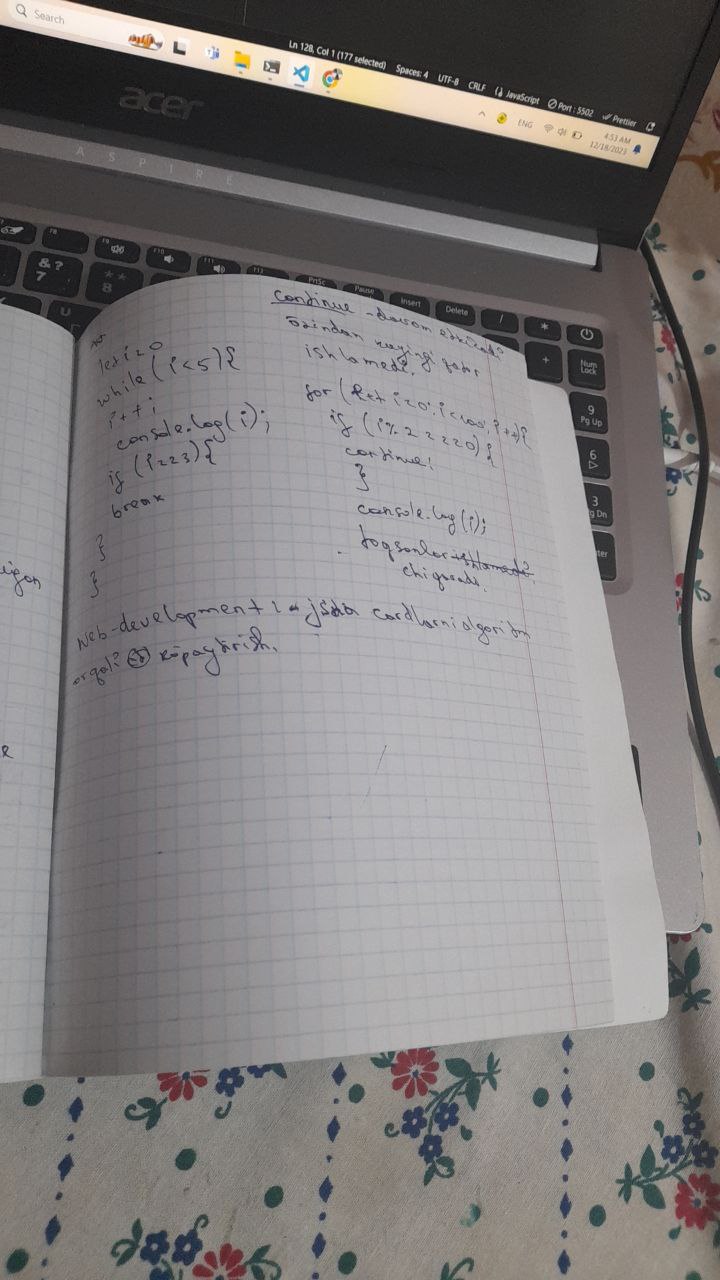 Search
Ln 128, Col 1 (177 selected)
Spaces: 4
UTF-8
CRLF
JavaScript
Port : 5502
Prettier
ENG
4:53 AM
12/18/2023
acer
ASPIRE
F8
F9
F10
F11
F12
PrtSc
Pause
Insert
Delete
/
*
& ?
7
* *
8
U
+
Num
Lock
9
Pg Up
6
3
Pg Dn
let i=0
while (i<5){
i++;
console.log(i);
if (i==3){
break
}
}
continue - davom
keyingi
ishlamedi.
for (let i=0; i<100; i++){
if (i%2===0){
continue;
}
console.log(i);
toqsonlar ishlamedi
chiqaradi.
Web-development : - jsda cardlarni algoritm
orqali ko'paytirish.